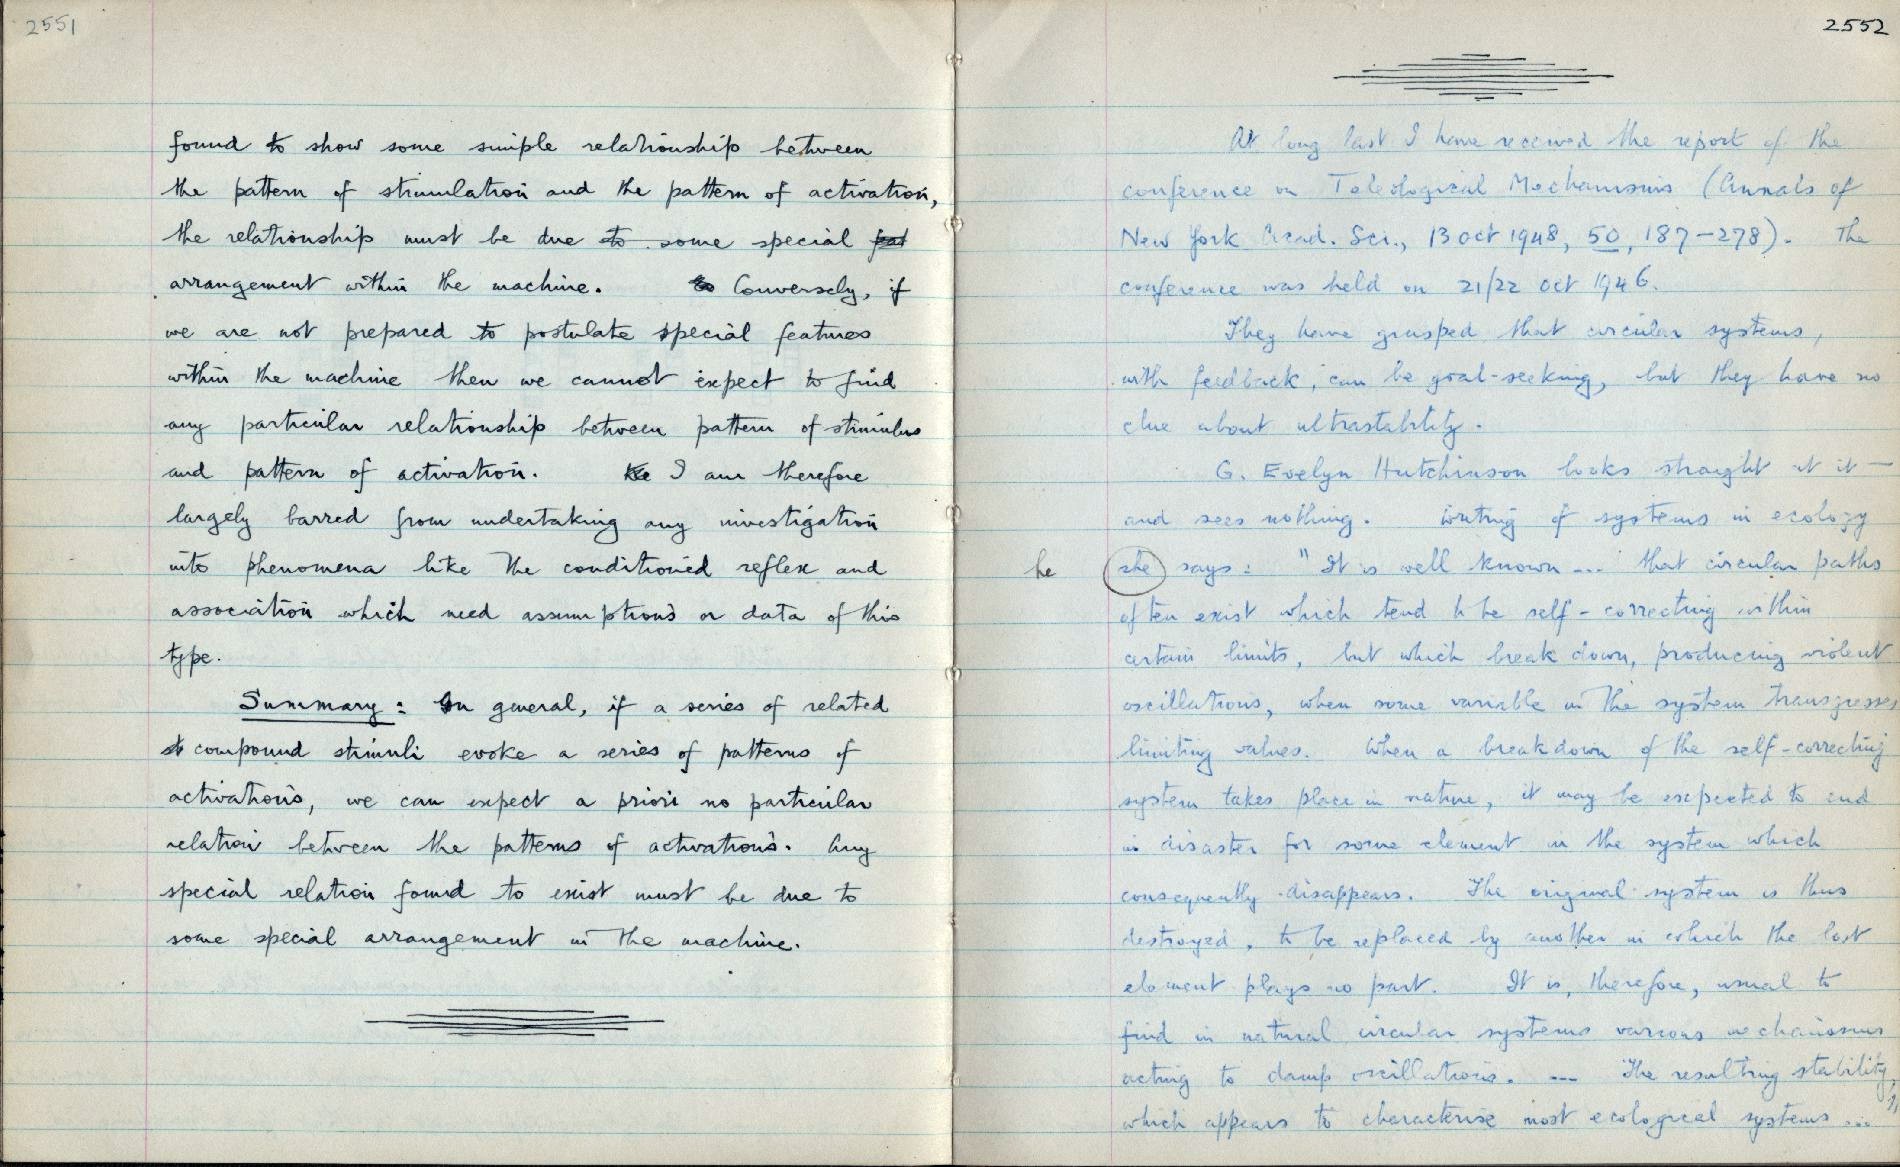 2551
found to show some simple relationship between
the pattern of stimulation and the pattern of activation,
the relationship must be due to some special feat
arrangement within the machine. Conversely, if
we are not prepared to postulate special features
within the machine then we cannot expect to find
any particular relationship between pattern of stimulus
and pattern of activation. I am therefore
largely barred from undertaking any investigation
into phenomena like the conditioned reflex and
association which need assumptions or data of this
type.
Summary: In general, if a series of related
st compound stimuli evoke a series of patterns of
activations, we can expect a priori no particular
relation between the patterns of activations. Any
special relation found to exist must be due to
some special arrangement in the machine.
2552
At long last I have received the report of the
conference on Teleological Mechanisms (Annals of
New York Acad. Sci., 13 Oct 1948, 50, 187-278). The
conference was held on 21/22 Oct 1946.
They have grasped that circular systems,
with feedback, can be goal-seeking, but they have no
clue about ultrastability.
G. Evelyn Hutchinson looks straight at it —
and sees nothing. Writing of systems in ecology
he she says: "It is well known ... that circular paths
often exist which tend to be self-correcting within
certain limits, but which break down, producing violent
oscillations, when some variable in the system transgresses
limiting values. When a breakdown of the self-correcting
system takes place in nature, it may be expected to end
in disaster for some element in the system which
consequently disappears. The original system is thus
destroyed, to be replaced by another in which the lost
element plays no part. It is, therefore, usual to
find in natural circular systems various mechanisms
acting to damp oscillations. --- The resulting stability,
which appears to characterise most ecological systems ...